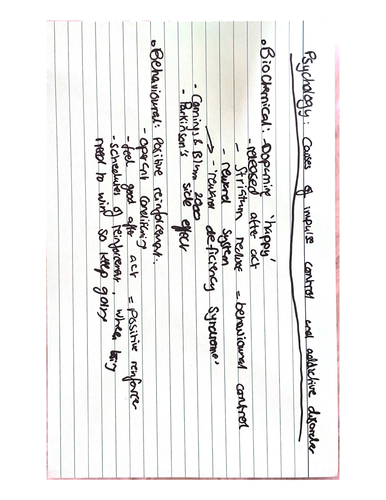 Psychology: Causes of impulse control and addictive disorder
• Biochemical: - Dopamine 'happy'
- released after act
- striatum = behavioural control
- reward system
→ 'reward deficiency syndrome'
- Comings & Blum 2000
- Parkinson's side effect
• Behavioural: Positive reinforcement.
- operant conditioning
- feel good after act = positive reinforcer
- schedules of reinforcement, when
need to win so keep going